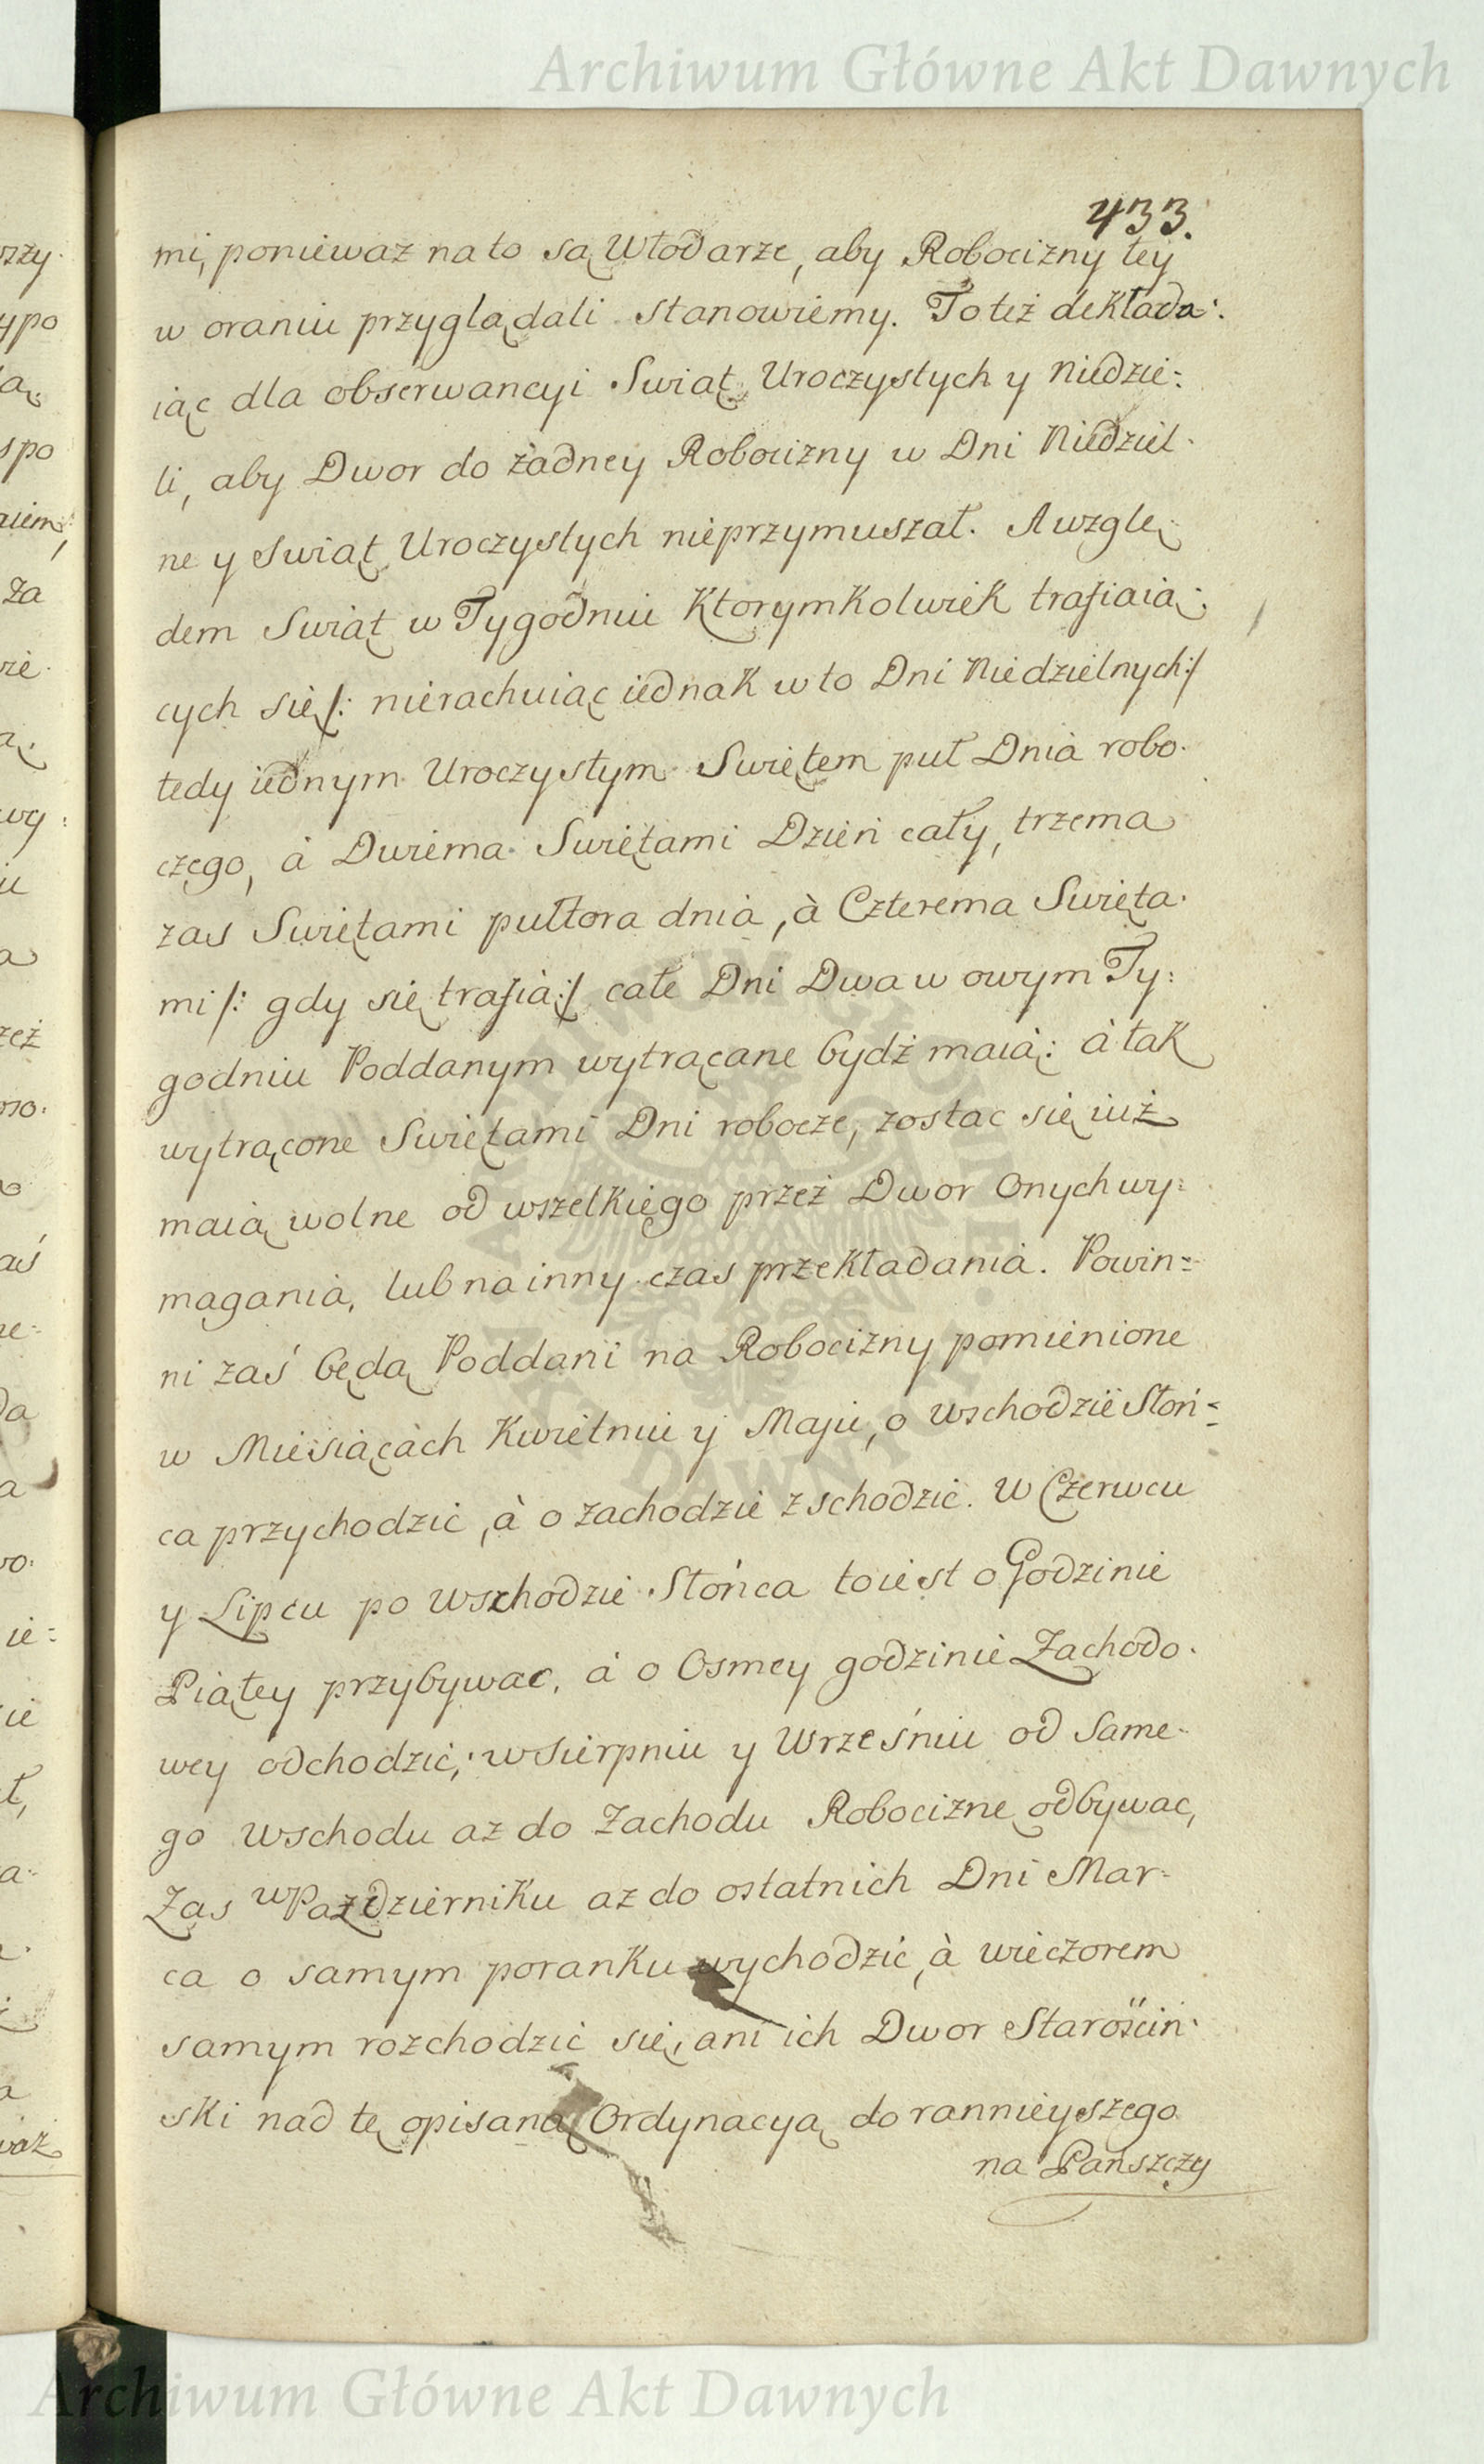 Archiwum Główne Akt Dawnych
433.
mi, poniewaz na to są Włodarze, aby Robocizny tey
w oraniu przyglądali stanowiemy. To też dokłada:
iąc dla obserwancyi Swiąt Uroczystych y Niedzie:
li, aby Dwor do żadney Robocizny w Dni Niedziel-
ne y Swiąt Uroczystych nieprzymuszał. A wzglę-
dem Swiąt w Tygodniu Ktorymkolwiek trafiaią:
cych się /: nierachuiąc iednak w to Dni Niedzielnych :/
tedy iednym Uroczystym Swiętem puł Dnia robo-
czego, à Dwiema Swiętami Dzień cały, trzema
zas Swiętami pułtora dnia, à Czterema Swięta-
mi /: gdy się trafią :/ całe Dni Dwa w owym Ty:
godniu Poddanym wytrącane bydź maią: à tak
wytrącone Swiętami Dni robocze, zostac się iuż
maią wolne od wszelkiego przez Dwor Onych wy:
magania, lub na inny czas przekładania. Powin=
ni zaś będą Poddani na Robocizny pomienione
w Miesiącach Kwietniu y Maju, o wschodzie Słoń=
ca przychodzić, à o zachodzie zschodzić. W Czerwcu
y Lipcu po wschodzie Słońca to iest o Godzinie
Piątey przybywac, à o Osmey godzinie Zachodo-
wey odchodzić, w Sierpniu y Wrześniu od same-
go wschodu az do Zachodu Robociznę odbywac,
Zas w Pazdzierniku az do ostatnich Dni Mar-
ca o samym poranku wychodzić, à wieczorem
samym rozchodzić się, ani ich Dwor Starościn-
ski nad tę opisaną Ordynacyą do rannieyszego
na Pańszczy
Archiwum Główne Akt Dawnych